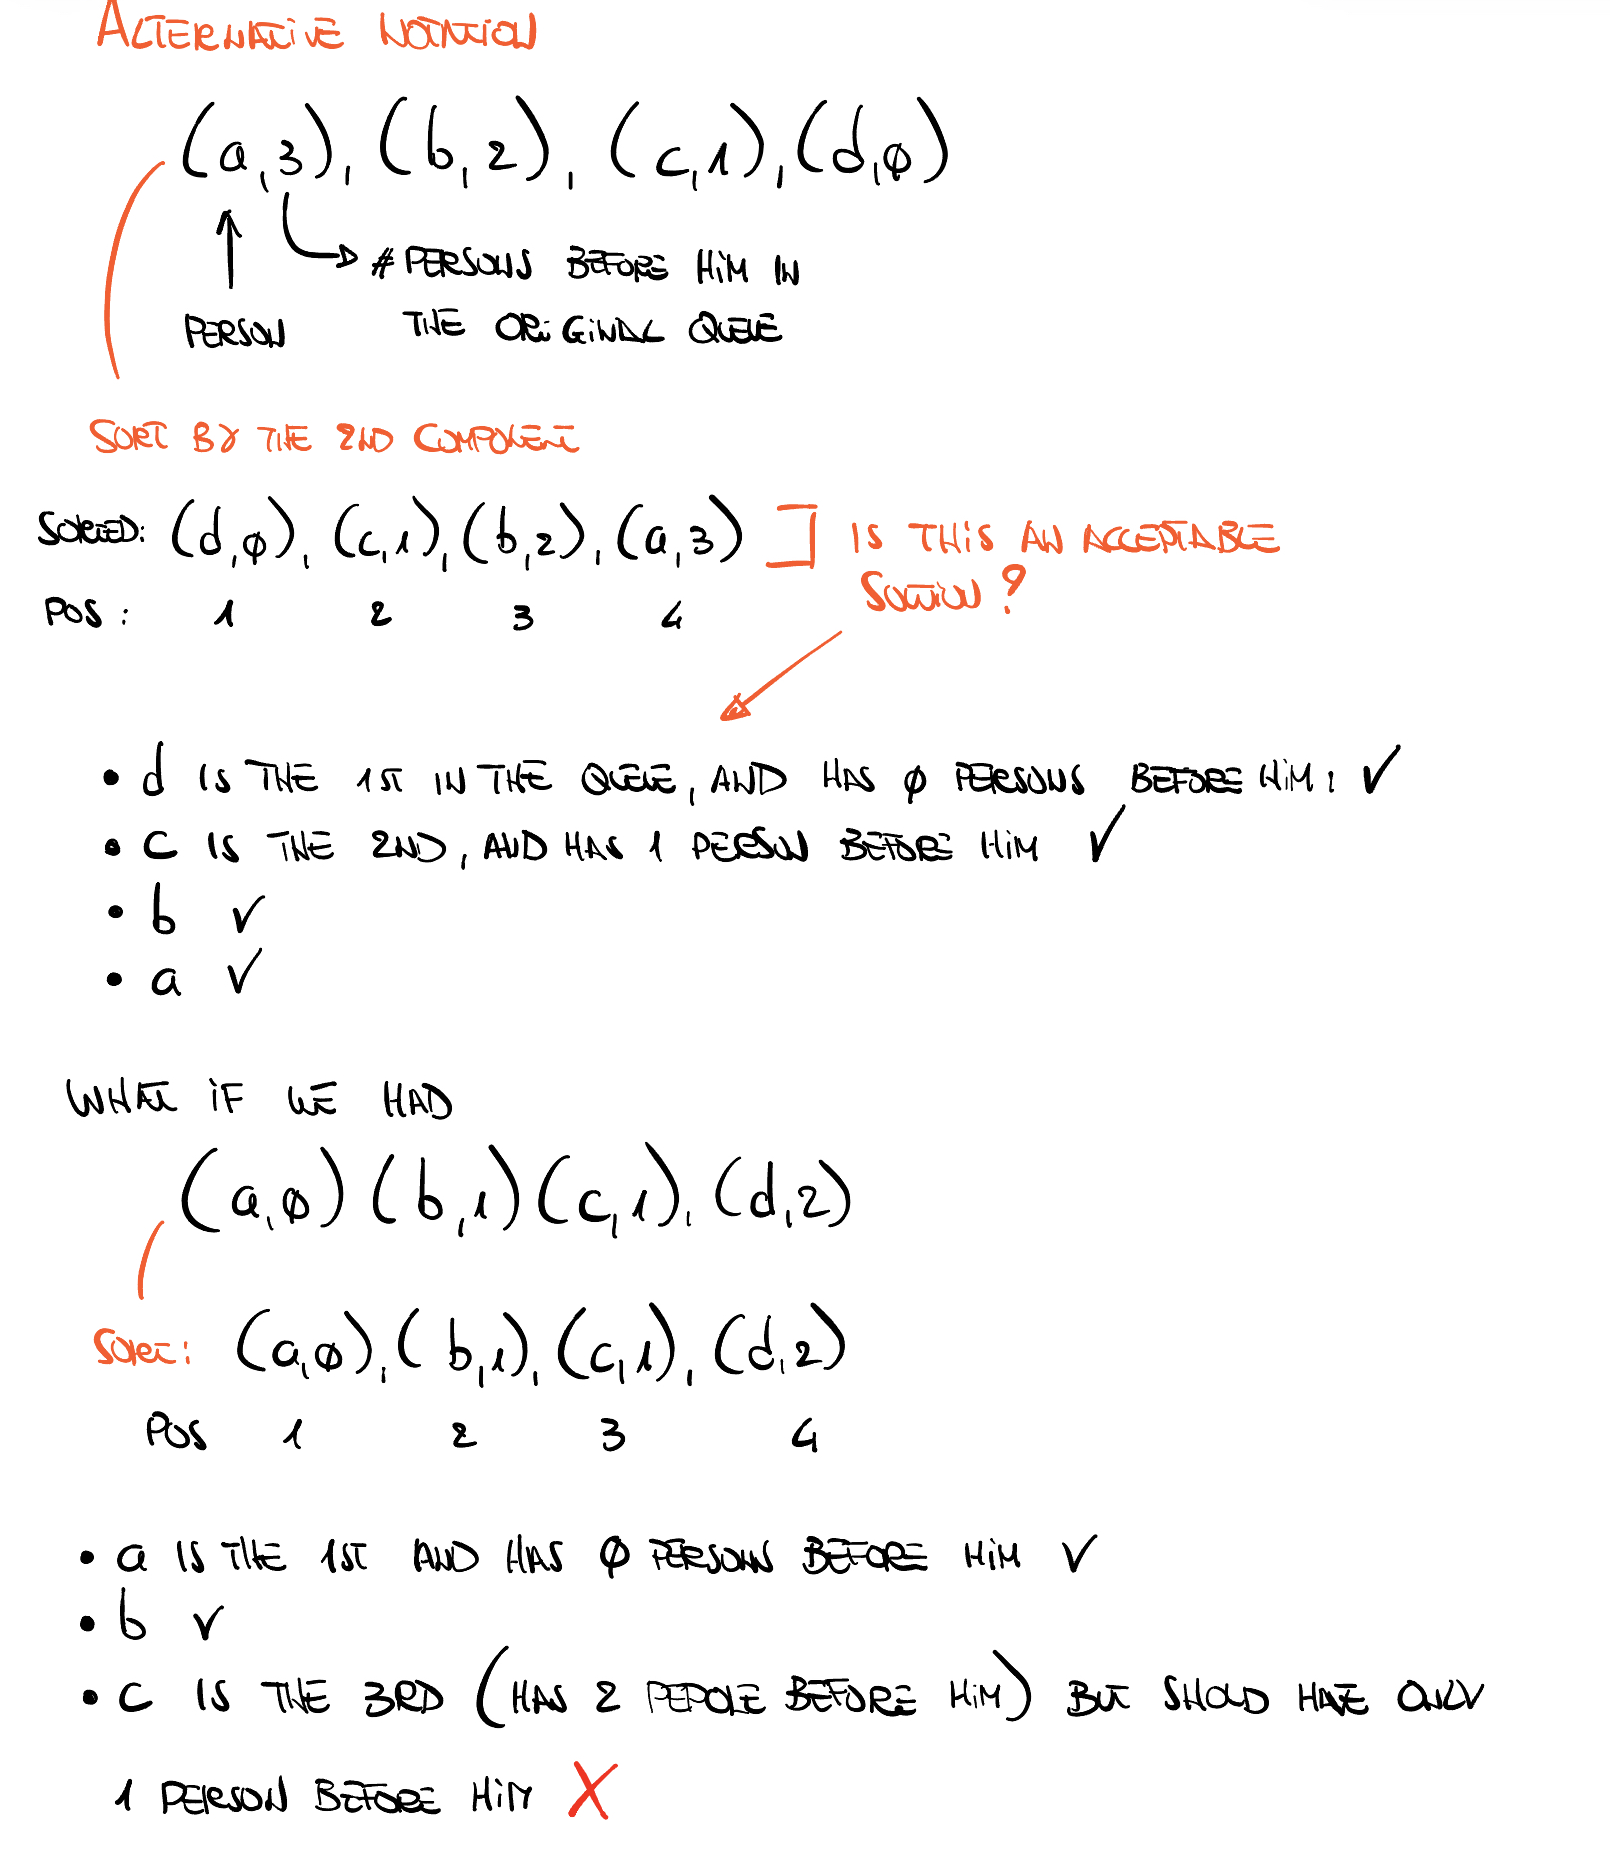 ALTERNATIVE NOTATION
(a,3), (b,2), (c,1), (d,ø)
# PERSONS BEFORE HIM IN
THE ORIGINAL QUEUE
PERSON
SORT BY THE 2ND COMPONENT
SORTED: (d,ø), (c,1), (b,2), (a,3) IS THIS AN ACCEPTABLE
SOLUTION?
POS: 1 2 3 4
• d IS THE 1ST IN THE QUEUE, AND HAS ø PERSONS BEFORE HIM: ✓
• c IS THE 2ND, AND HAS 1 PERSON BEFORE HIM ✓
• b ✓
• a ✓
WHAT IF WE HAD
(a,ø) (b,1) (c,1), (d,2)
SORT: (a,ø), (b,1), (c,1), (d,2)
POS 1 2 3 4
• a IS THE 1ST AND HAS ø PERSONS BEFORE HIM ✓
• b ✓
• c IS THE 3RD (HAS 2 PEPOLE BEFORE HIM) BUT SHOULD HAVE ONLY
1 PERSON BEFORE HIM X